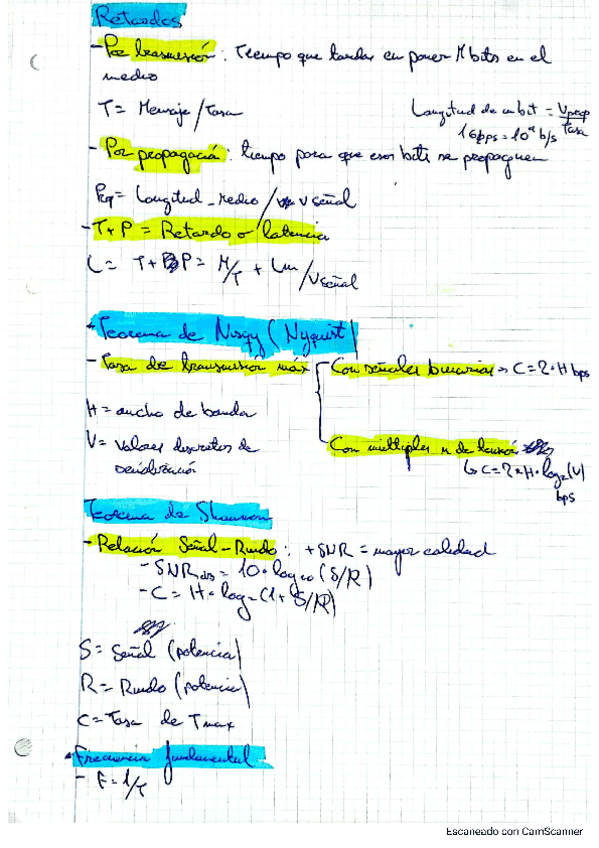 Retardos
- Por transmisión : Tiempo que tardas en poner M bits en el
medio
T = Mensaje / Tasa
Longitud de un bit = Vprop / Tasa
1Gbps = 10⁹ b/s
- Por propagación : tiempo para que esos bits se propaguen
= Longitud_Medio / v señal
- T + P = Retardo o latencia
L = T + P = M/T + Lm / Vseñal
- Teorema de (Nyquist)
- Tasa de transmisión máx
Con señales binarias → C = 2·H bps
H = ancho de banda
V = valores discretos de
señalización
Con múltiples n de
↳ C = 2·H·log₂(V)
bps
Teorema de Shannon
- Relación Señal-Ruido : + SNR = mayor calidad
- SNR = 10·log₁₀ (S/R)
- C = H·log₂(1 + S/R)
S = Señal (potencia)
R = Ruido (potencia)
C = Tasa de Tmax
Frecuencia fundamental
- F = 1/T
Escaneado con CamScanner